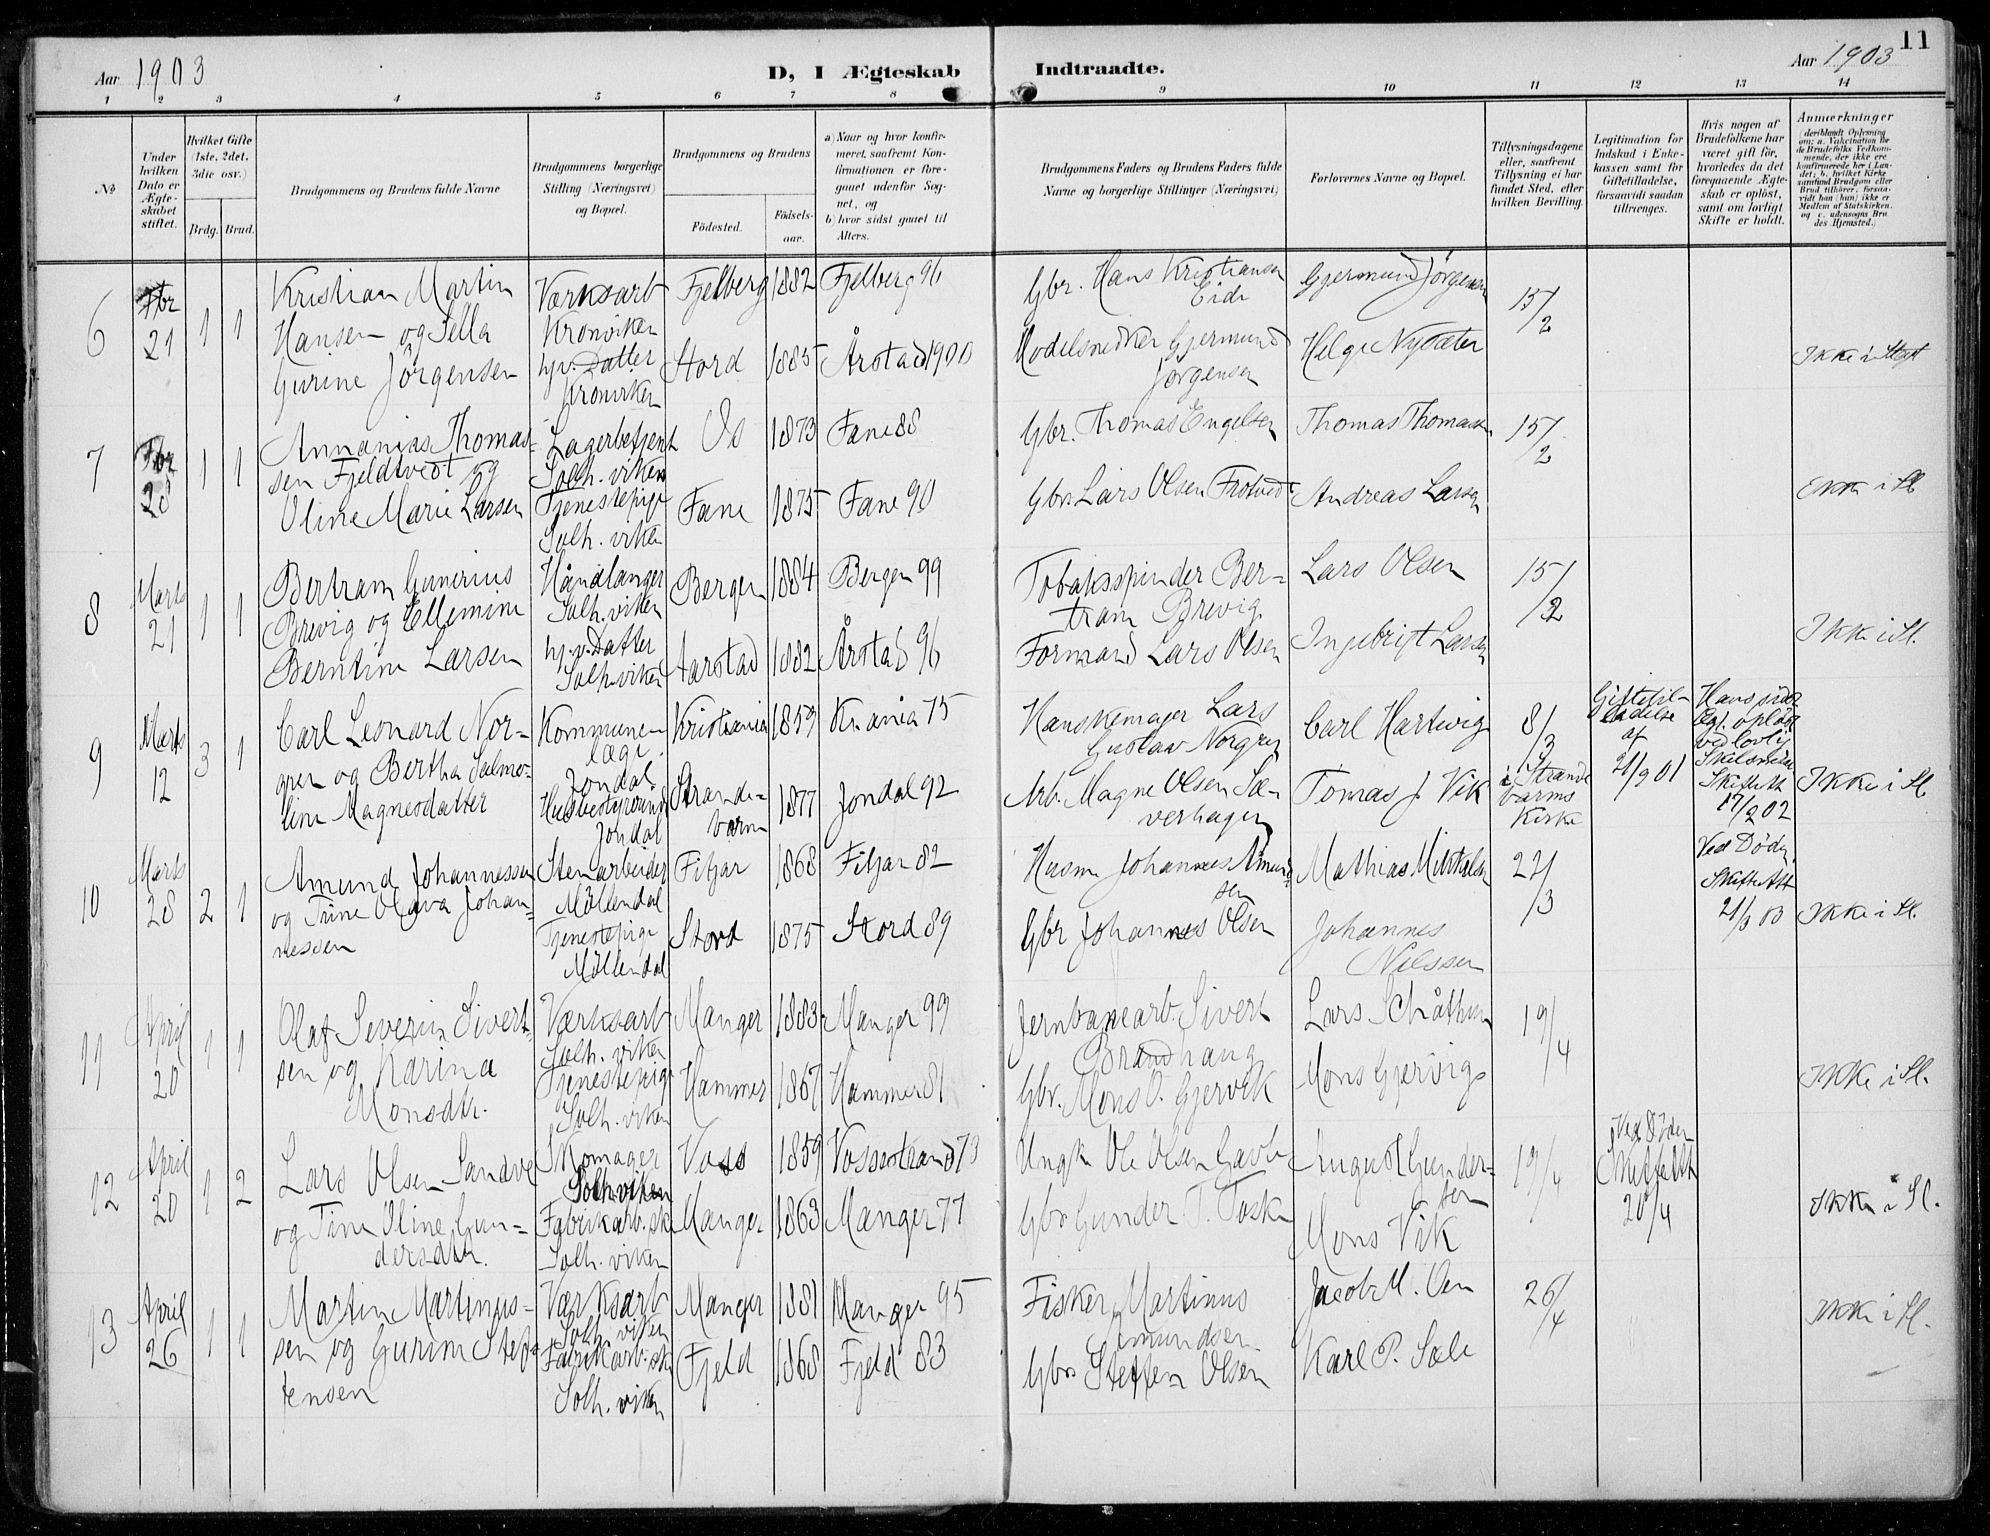 11
Aar 1903
D, I Ægteskab Indtraadte.
Aar 1903
1 2 3 4 5 6 7 8 9 10 11 12 13 14
No
Under hvilken Dato er Ægteskabet stiftet.
Hvilket Gifte (1ste, 2det, 3die osv.)
Brdg. Brud.
Brudgommens og Brudens fulde Navne
Brudgommens borgerlige Stilling (Næringsvei) og Bopæl.
Brudgommens og Brudens
Fødested. Fødselsaar.
a) Naar og hvor konfirmeret, saafremt Konfirmationen er foregaaet udenfor Sognet, og
b) hvor sidst gaaet til Alters.
Brudgommens Faders og Brudens Faders fulde Navne og borgerlige Stillinger (Næringsvei)
Forlovernes Navne og Bopæl.
Tillysningsdagene eller, saafremt Tillysning ei har fundet Sted, efter hvilken Bevilling.
Legitimation for Indskud i Enkekassen samt for Giftetilladelse, forsaavidt saadan tiltrænges.
Hvis nogen af Brudefolkene har været gift før, hvorledes da det foregaaende Ægteskab er opløst, samt om lovligt Skifte er holdt.
Anmærkninger
(deriblandt Oplysning om: a. Vakcination for de Brudefolks Vedkommende, der ikke ere konfirmerede her i Landet; b. hvilket Kirkesamfund Brudgom eller Brud tilhører, forsaavidt han (hun) ikke er Medlem af Statskirken, og c. udensogns Brudes Hjemsted.)
6
Fbr
21
1 1
Kristian Martin
Hansen og Sella
Gurine Jörgensen
Værksarb
Kronviken
hjv. Datter
Kronviken
Fjelberg 1882 Fjelberg 96
Stord 1885 Årstad 1900
Gbr. Hans Kristiansen
Eide
Modelsnedker Gjermund
Jørgensen
Gjermund Jørgensen
Helge Nysæter
15/2
Ikke i Slegt
7
Fbr
28
1 1
Annanias Thomas-
sen Fjeldtvedt og
Oline Marie Larsen
Lagerbetjent
Solh. viken
Tjenestepige
Solh. viken
Os 1873 Fane 88
Fane 1875 Fane 90
Gbr. Thomas Engelsen
Gbr. Lars Olsen
Thomas Thomassen
Andreas Larsen
15/2
Ikke i Sl
8
Marts
21
1 1
Bertram Gunerius
Brevig og Ellemine
Berntine Larsen
Håndlanger
Solh. viken
hj. v. Datter
Solh. viken
Bergen 1884 Bergen 99
Aarstad 1882 Årstad 96
Tobaksspinder Ber-
tram Brevig
Formand Lars Olsen
Lars Olsen
Ingebrigt Larsen
15/2
Ikke i Sl.
9
Marts
12
3 1
Carl Leonard Nor-
gren og Bertha Salmo-
line Magnesdatter
Kommune-
læge
Jondal
Husbestyrerinde
Jondal
Kristiania 1853 Kr.ania 75
Strande-
barm 1877 Jondal 92
Hanskemager Lars
Gustav Norgren
Arb. Magne Olsen Sæ-
verhagen
Carl Hartvig
Tomas J. Vik
8/3
i Strande
barms
Kirke
Giftetil-
ladelse
af
21/9 01
Hans sidste
Ægt. opløst
ved lovlig
Skilsmisse
Skifteatt
17/2 02
Ikke i Sl.
10
Marts
28
2 1
Amund Johannessen
og Trine Olava Johan-
nessen
Stenarbeider
Möllendal
Tjenestepige
Möllendal
Fitjar 1868 Fitjar 82
Stord 1875 Stord 89
Husm. Johannes Amund-
sen
Gbr Johannes Olsen
Johannes
Nilssen
22/3
Ved Døden
Skifte Att
21/3 03
Ikke i Sl.
11
April
20
1 1
Olaf Severin Sivert-
sen og Karina
Monsdtr.
Værksarb
Solh. viken
Tjenestepige
Solh. viken
Manger 1883 Manger 99
Hammer 1867 Hammer 81
Jernbanearb. Sivert
Brandhaug
Gbr. Mons O. Gjervik
Lars Schåthun
Mons Gjervig
19/4
Ikke i Sl.
12
April
20
1 2
Lars Olsen Sandve
og Tine Oline Gun-
dersdtr.
Skomager
Solh. viken
Fabrikarb.ske
Solh. viken
Voss 1859 Vossestrand 73
Manger 1863 Manger 77
Ungk. Ole Olsen
Gbr Gunder T. Toska
August Gunder-
sen
Mons Vik
19/4
Ved Döden
Skifteatt
20/4
Ikke i Sl.
13
April
26
1 1
Martin Martinus-
sen og Gurine Stef-
fensen
Værksarb
Solh. viken
Fabrikarb.ske
Solh. viken
Manger 1881 Manger 95
Fjeld 1868 Fjeld 83
Fisker Martinus
Amundsen
Gbr Steffen Olsen
Jacob M. Oen
Karl P. Sæle
26/4
Ikke i Sl.